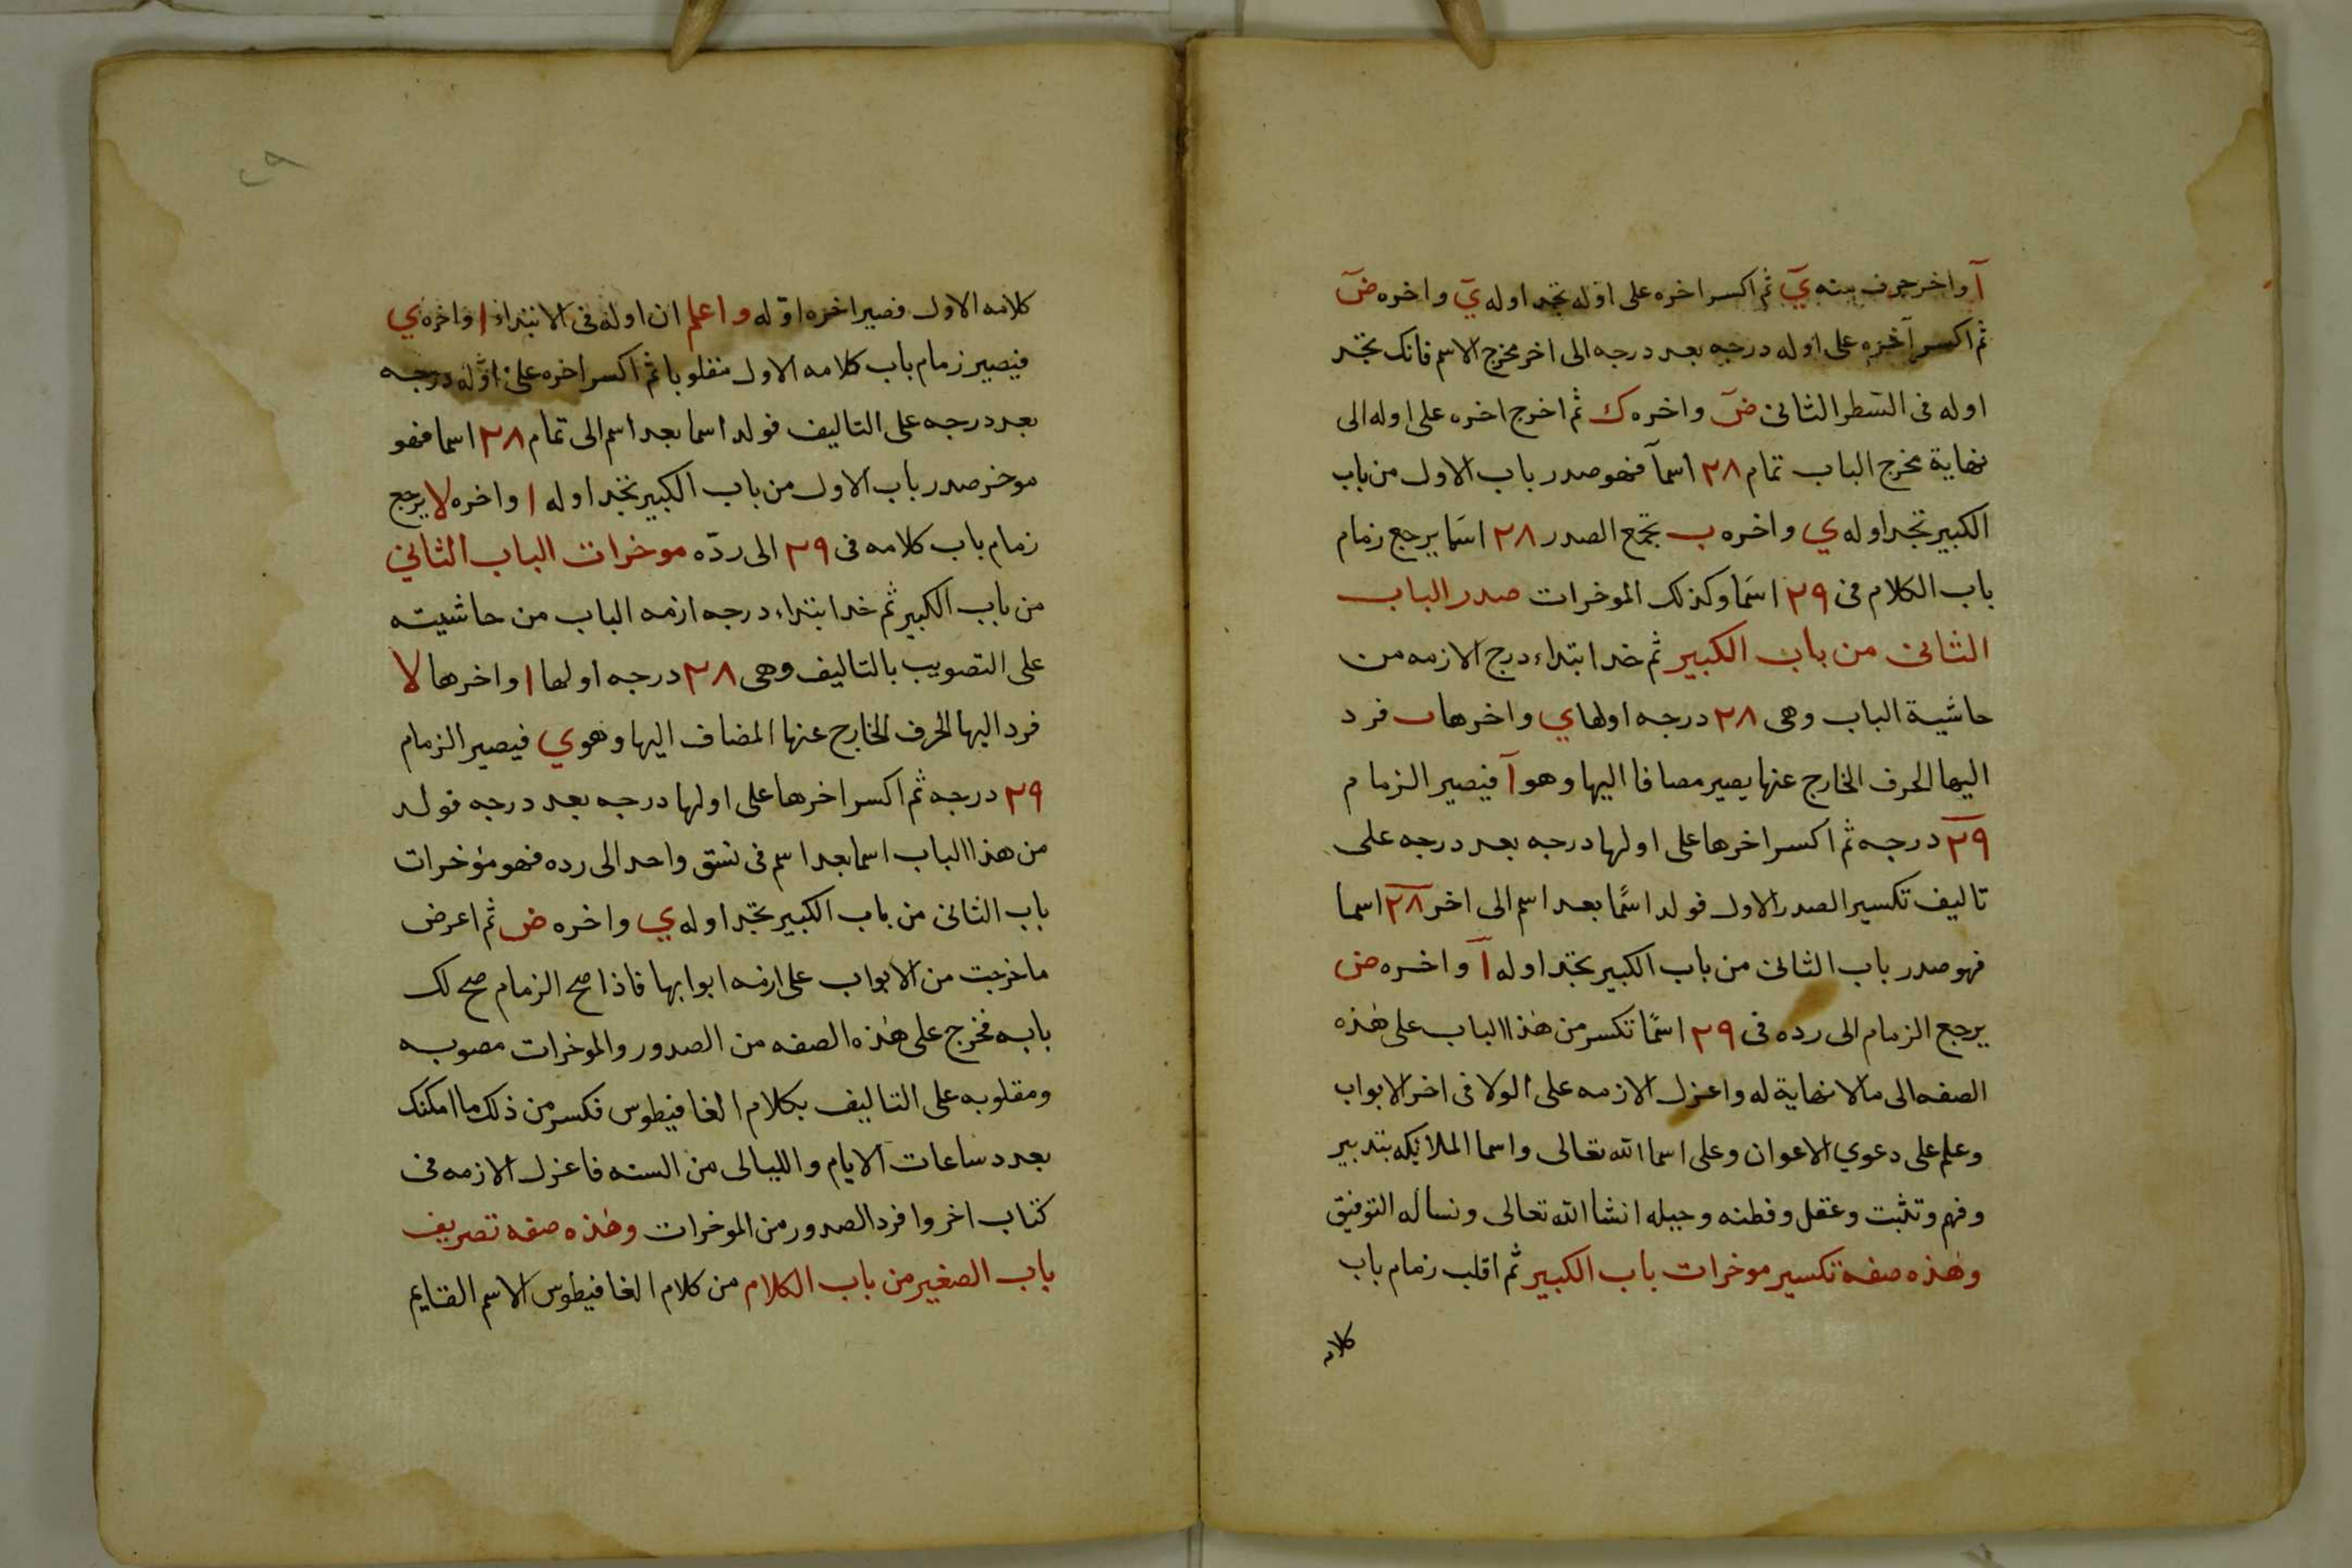 آ واخر حرف منه يَ ثم اكسر اخره على اوله تجد اوله يَ واخره ضَ
ثم اكسر آخره على اوله درجه بعد درجه الى اخر مخرج الاسم فانك تجد
اوله فى السطر الثانى ضَ واخره ك ثم اخرج اخره على اوله الى
نهاية مخرج الباب تمام ٢٨ اسماً فهو صدر باب الاول من باب
الكبير تجد اوله ي واخره ب تجمع الصدر ٢٨ اسما يرجع زمام
باب الكلام فى ٢٩ اسما وكذلك الموخرات صدر الباب
الثانى من باب الكبير ثم خد ابتداء درج الازمه من
حاشية الباب وهى ٢٨ درجه اولها ي واخرها ب فرد
اليها الحرف الخارج عنها يصير مصافا اليها وهو آ فيصير الزمام
٢٩ درجه ثم اكسر اخرها على اولها درجه بعد درجه على
تاليف تكسير الصدر الاول فولد اسمًا بعد اسم الى اخر ٢٨ اسما
فهو صدر باب الثانى من باب الكبير تجد اوله آ واخره ض
يرجع الزمام الى رده فى ٢٩ اسمًا تكسر من هذا الباب على هذه
الصفه الى مالا نهاية له واعزل الازمه على الولا فى اخر الابواب
وعلم على دعوي الاعوان وعلى اسما الله تعالى واسما الملايكه بتدبير
وفهم وتثبت وعقل وفطنه وحيله انشا الله تعالى ونساله التوفيق
وهذه صفه تكسير موخرات باب الكبير ثم اقلب زمام باب
كلامه
٢٩
كلامه الاول فصير اخره اوّله واعلم ان اوله فى الابتداء ا واخره ي
فيصير زمام باب كلامه الاول مقلوبا ثم اكسر اخره على اوّله درجه
بعد درجه على التاليف فولد اسما بعد اسم الى تمام ٢٨ اسما فهو
موخر صدر باب الاول من باب الكبير تجد اوله ا واخره لا يرجع
زمام باب كلامه فى ٢٩ الى ردّه موخرات الباب الثاني
من باب الكبير ثم خد ابتداء درجه ازمه الباب من حاشيته
على التصويب بالتاليف وهى ٢٨ درجه اولها ا واخرها لا
فرد اليها الحرف الخارج عنها المضاف اليها وهو ي فيصير الزمام
٢٩ درجه ثم اكسر اخرها على اولها درجه بعد درجه فولد
من هذا الباب اسما بعد اسم فى نسق واحد الى رده فهو مؤخرات
باب الثانى من باب الكبير تجد اوله ي واخره ض ثم اعرض
ما خرجت من الابواب على ازمه ابوابها فاذا صح الزمام صح لك
بابه فخرج على هذه الصفه من الصدور والموخرات مصوبه
ومقلوبه على التاليف بكلام الغافيطوس فكسر من ذلك ما امكنك
بعدد ساعات الايام والليالى من السنه فاعزل الازمه فى
كتاب اخر وافرد الصدور من الموخرات وهذه صفه تصريف
باب الصغير من باب الكلام من كلام الغافيطوس الاسم القايم